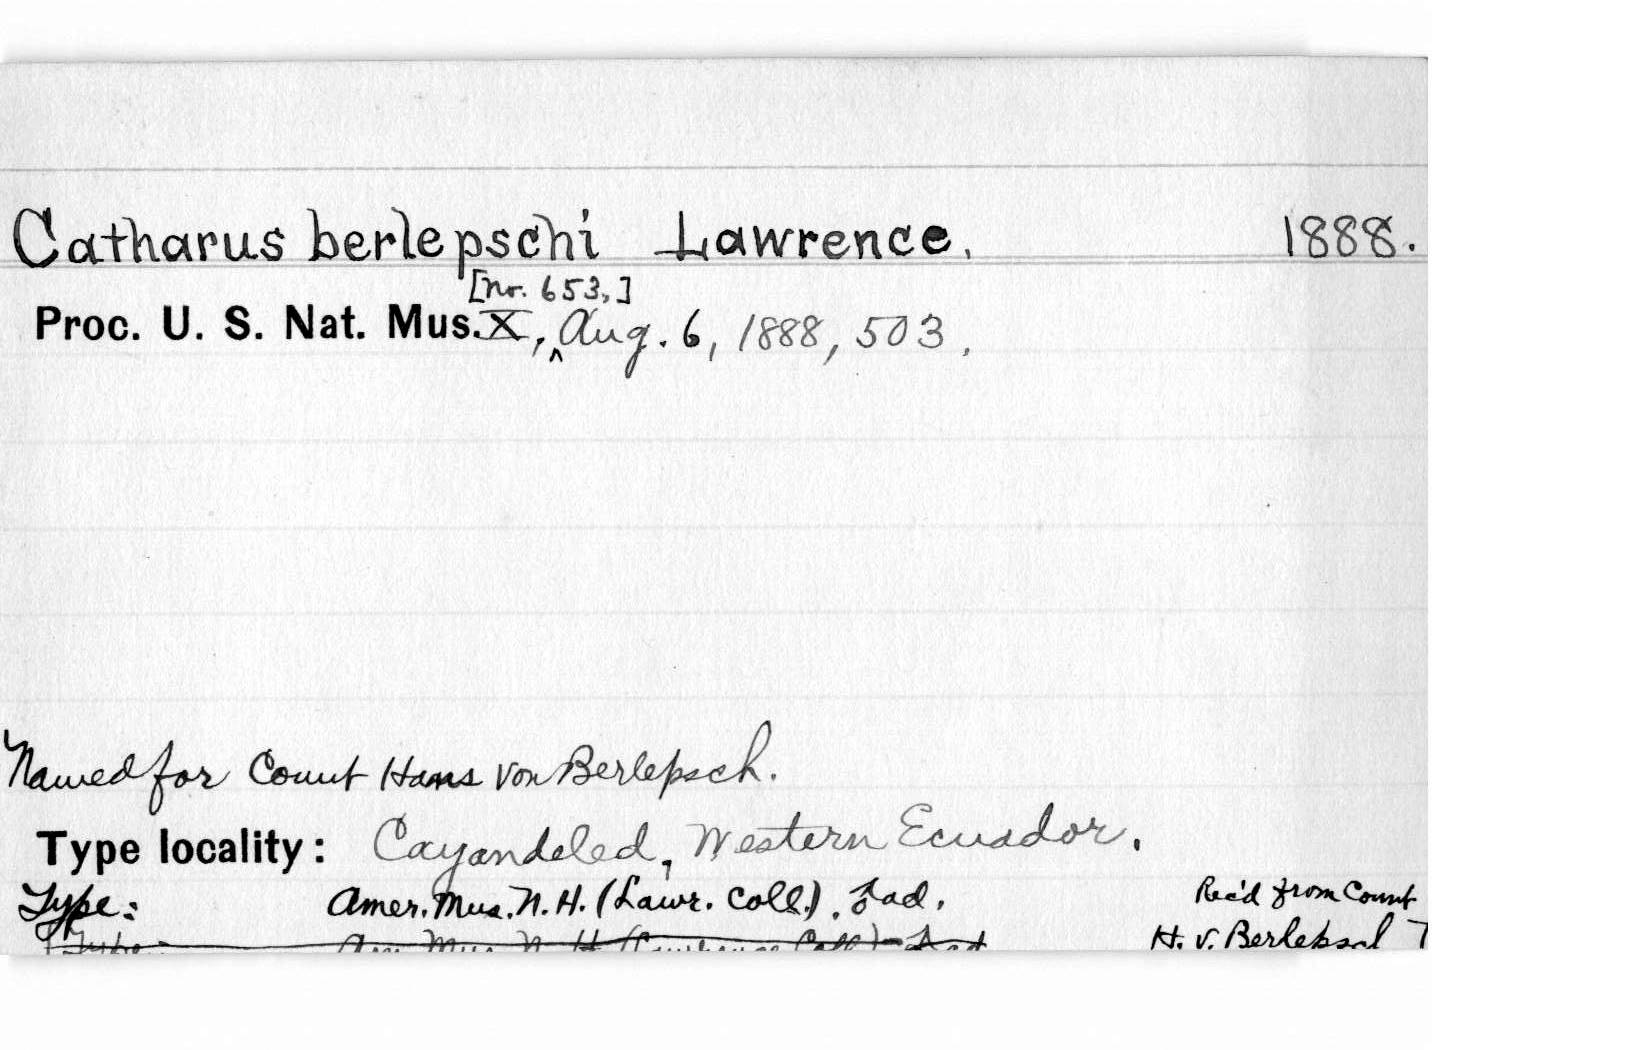 Catharus berlepschi Lawrence. 1888.
[no. 653,]
Proc. U. S. Nat. Mus. X, ^ Aug. 6, 1888, 503.
Named for Count Hans von Berlepsch.
Type locality: Cayandeled, Western Ecuador.
Type: Amer. Mus. N. H. (Lawr. Coll.). ad. Rec'd from Count
H. v. Berlepsch